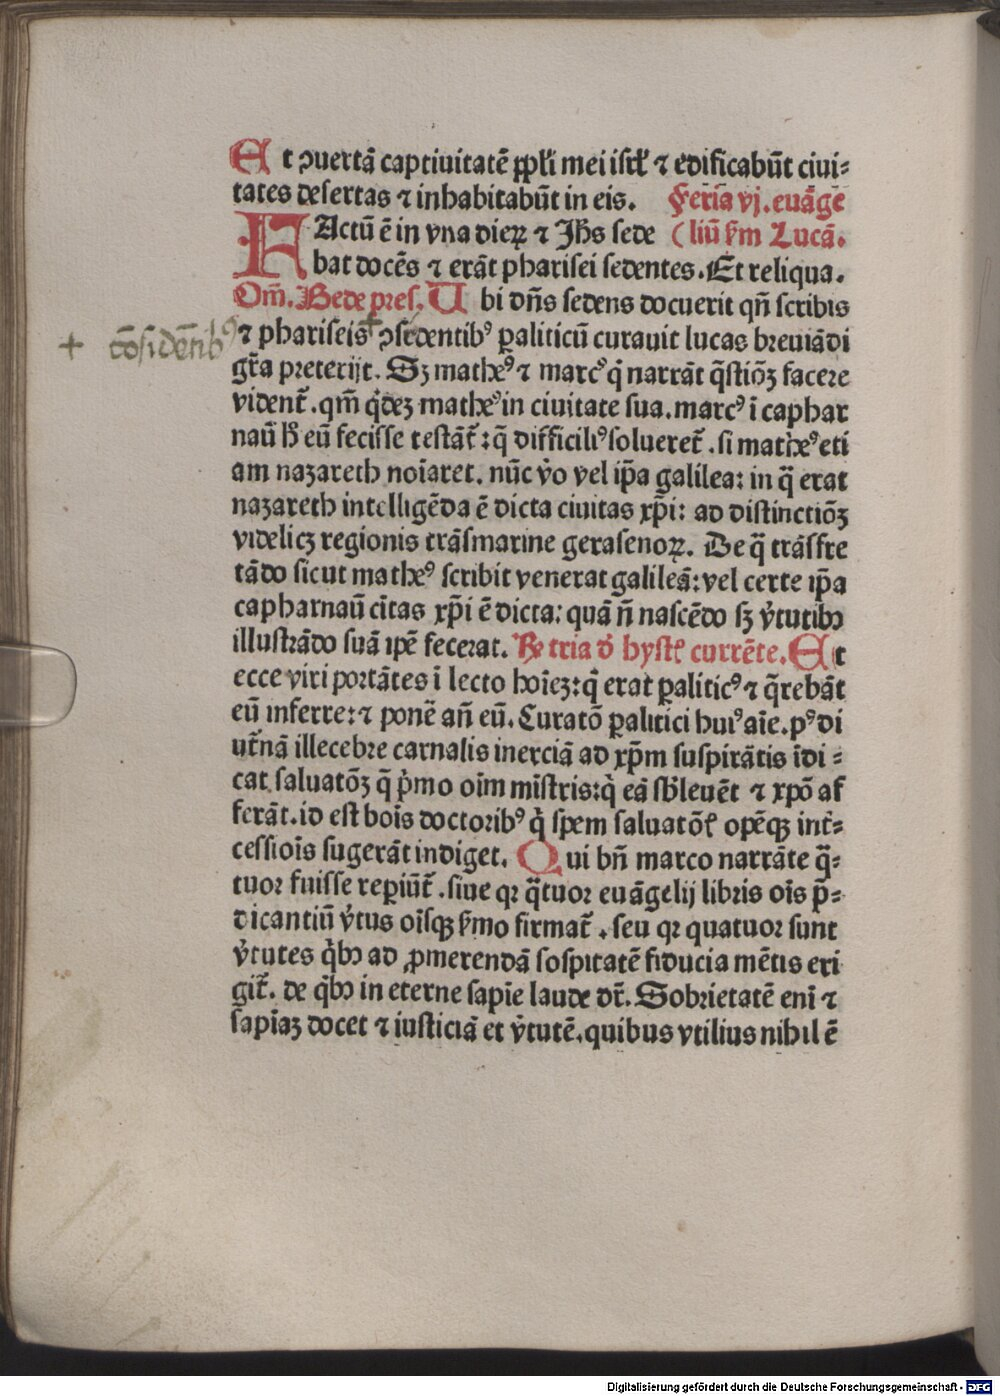 Et ↄuertā captiuitatē ꝓpl̄i mei isrl̄ ⁊ edificabūt ciui⸗
tates desertas ⁊ inhabitabūt in eis. Feria vj. euāge
FActū ē in vna dieꝝ ⁊ Jh̄s sede ( liū ẜm Lucā.
bat docēs ⁊ erāt pharisei sedentes. Et reliqua.
Om̄. Bede pres. U bi dn̄s sedens docuerit qn̄ scribis
⁊ phariseis + ↄsedentibꝰ ꝑaliticū curauit lucas breuiādi
+ cōsidētibꝰ
gr̄a preterijt. Sꝫ matheꝰ ⁊ marcꝰ q̇ narrāt q̄stiōꝫ facere
vident̄. qm̄ q̇deꝫ matheꝰ in ciuitate sua. marcꝰ ī caphar
naū h̄ eū fecisse testāt̄: q̄ difficiliꝰ solueret̄. si matheꝰ eti
am nazareth noīaret. nūc v̇o vel ip̄a galilea: in q̄ erat
nazareth intelligēda ē dicta ciuitas xp̄i: ad distinctiōꝫ
videlicꝫ regionis trāsmarine gerasenoꝝ. De q̄ trāsfre
tādo sicut matheꝰ scribit venerat galileā: vel certe ip̄a
capharnaū c̄itas xp̄i ē dicta: quā n̄ nascēdo sꝫ v̇tutibꝫ
illustrādo suā ip̄e fecerat. ℞ tria d̄ hyst̄ currēte. Et
ecce viri portātes ī lecto hoīeꝫ: q̇ erat ꝑaliticꝰ ⁊ q̄rebāt
eū inferre: ⁊ ponē an̄ eū. Curatō ꝑalitici huiꝰ aīe. pꝰ di
ut̄nā illecebre carnalis inerciā ad xp̄m suspirātis īdi⸗
cat saluatōꝫ q̄ ṗmo oīm mīstris: q̇ eā sb̄leuēt ⁊ xpō af
ferāt. id est boīs doctoribꝰ q̇ spem saluatōꝭ opēqꝫ int̄⸗
cessioīs sugerāt indiget. Q ui bn̄ marco narrāte q̄⸗
tuor fuisse reꝑiūt̄. siue qꝛ q̄tuor euāgelij libris oīs p̄⸗
dicantiū v̇tus oīsqꝫ ẜmo firmat̄. seu qꝛ quatuor sunt
v̇tutes q̇bꝫ ad ꝓmerendā sospitatē fiducia mētis eri
git̄. de q̇bꝫ in eterne sapīe laude dr̄. Sobrietatē enī ⁊
sapīaꝫ docet ⁊ iusticiā et v̇tutē. quibus vtilius nihil ē
Digitalisierung gefördert durch die Deutsche Forschungsgemeinschaft - DFG